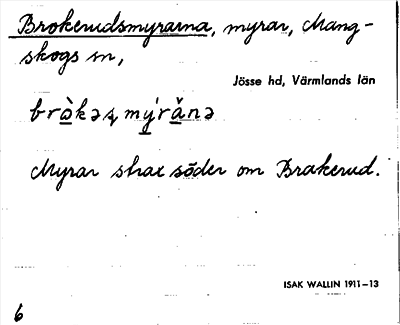 Brokerudsmyrarna, myrar, Mang-
skogs sn,
Jösse hd, Värmlands län
Myrar strax söder om Brakerud.
ISAK WALLIN 1911–13
6